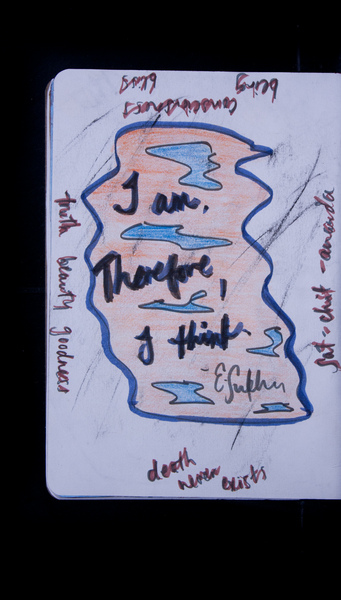 being
consciousness
bliss
truth beauty goodness
I am.
Therefore,
I think.
sat-chit-ananda
death
never exists